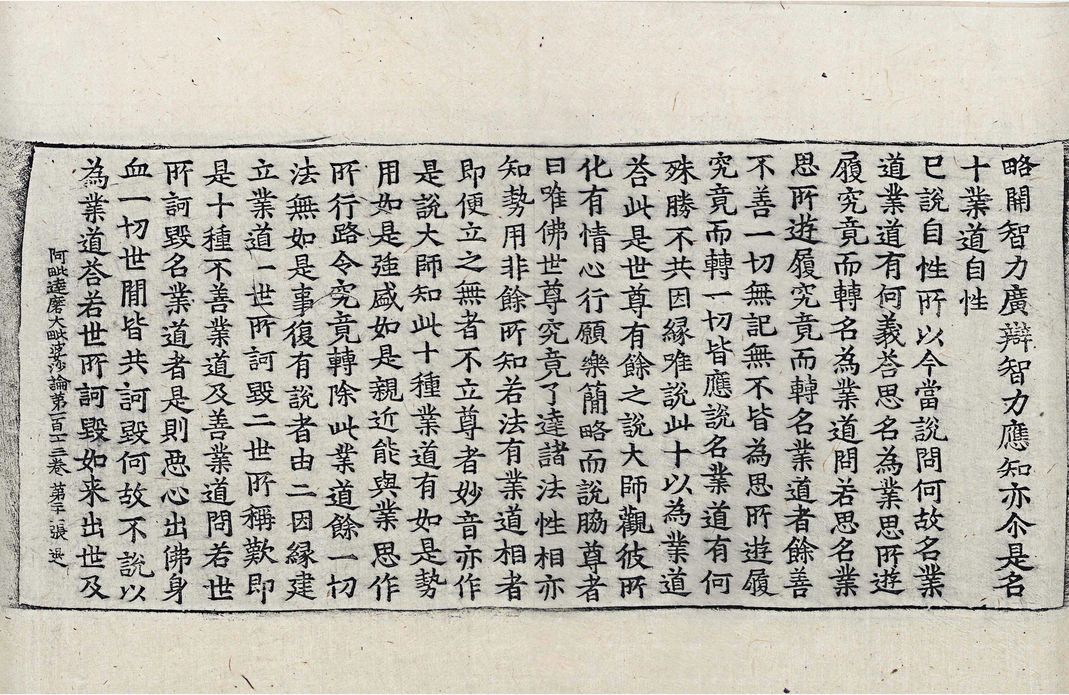 略開智力廣辯智力應知亦尒是名
十業道自性
已說自性所以今當說問何故名業
道業道有何義荅思名為業思所遊
履究竟而轉名為業道問若思名業
思所遊履究竟而轉名業道者餘善
不善一切無記無不皆為思所遊履
究竟而轉一切皆應說名業道有何
殊勝不共因緣唯說此十以為業道
荅此是世尊有餘之說大師觀彼所
化有情心行願樂簡略而說脇尊者
曰唯佛世尊究竟了達諸法性相亦
知勢用非餘所知若法有業道相者
即便立之無者不立尊者妙音亦作
是說大師知此十種業道有如是勢
用如是強盛如是親近能與業思作
所行路令究竟轉除此業道餘一切
法無如是事復有說者由二因緣建
立業道一世所訶毀二世所稱歎即
是十種不善業道及善業道問若世
所訶毀名業道者是則惡心出佛身
血一切世閒皆共訶毀何故不說以
為業道荅若世所訶毀如来出世及
阿毗達磨大毗婆沙論第一百一十三卷 第 張